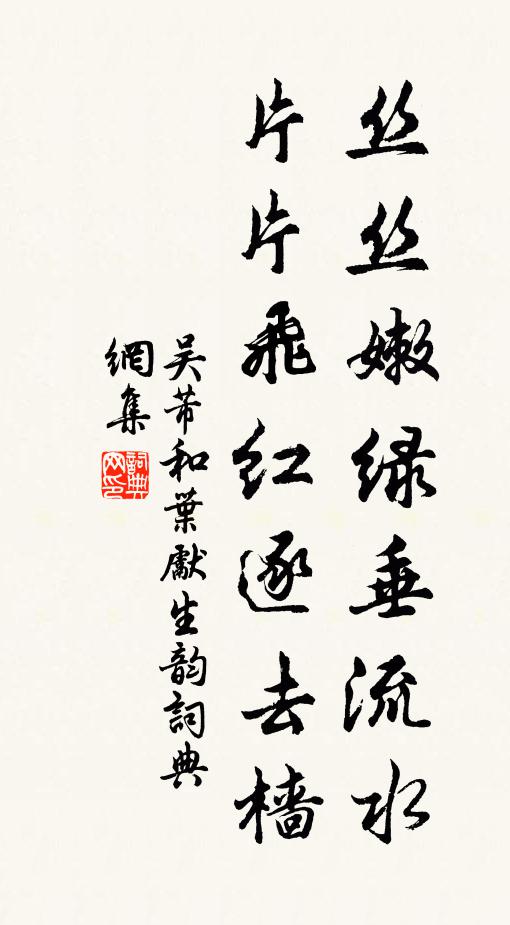 丝丝嫩绿垂流水
片片飞红逐去樯
吴芾和葉獻生韵詞典
網集
詞典
网印